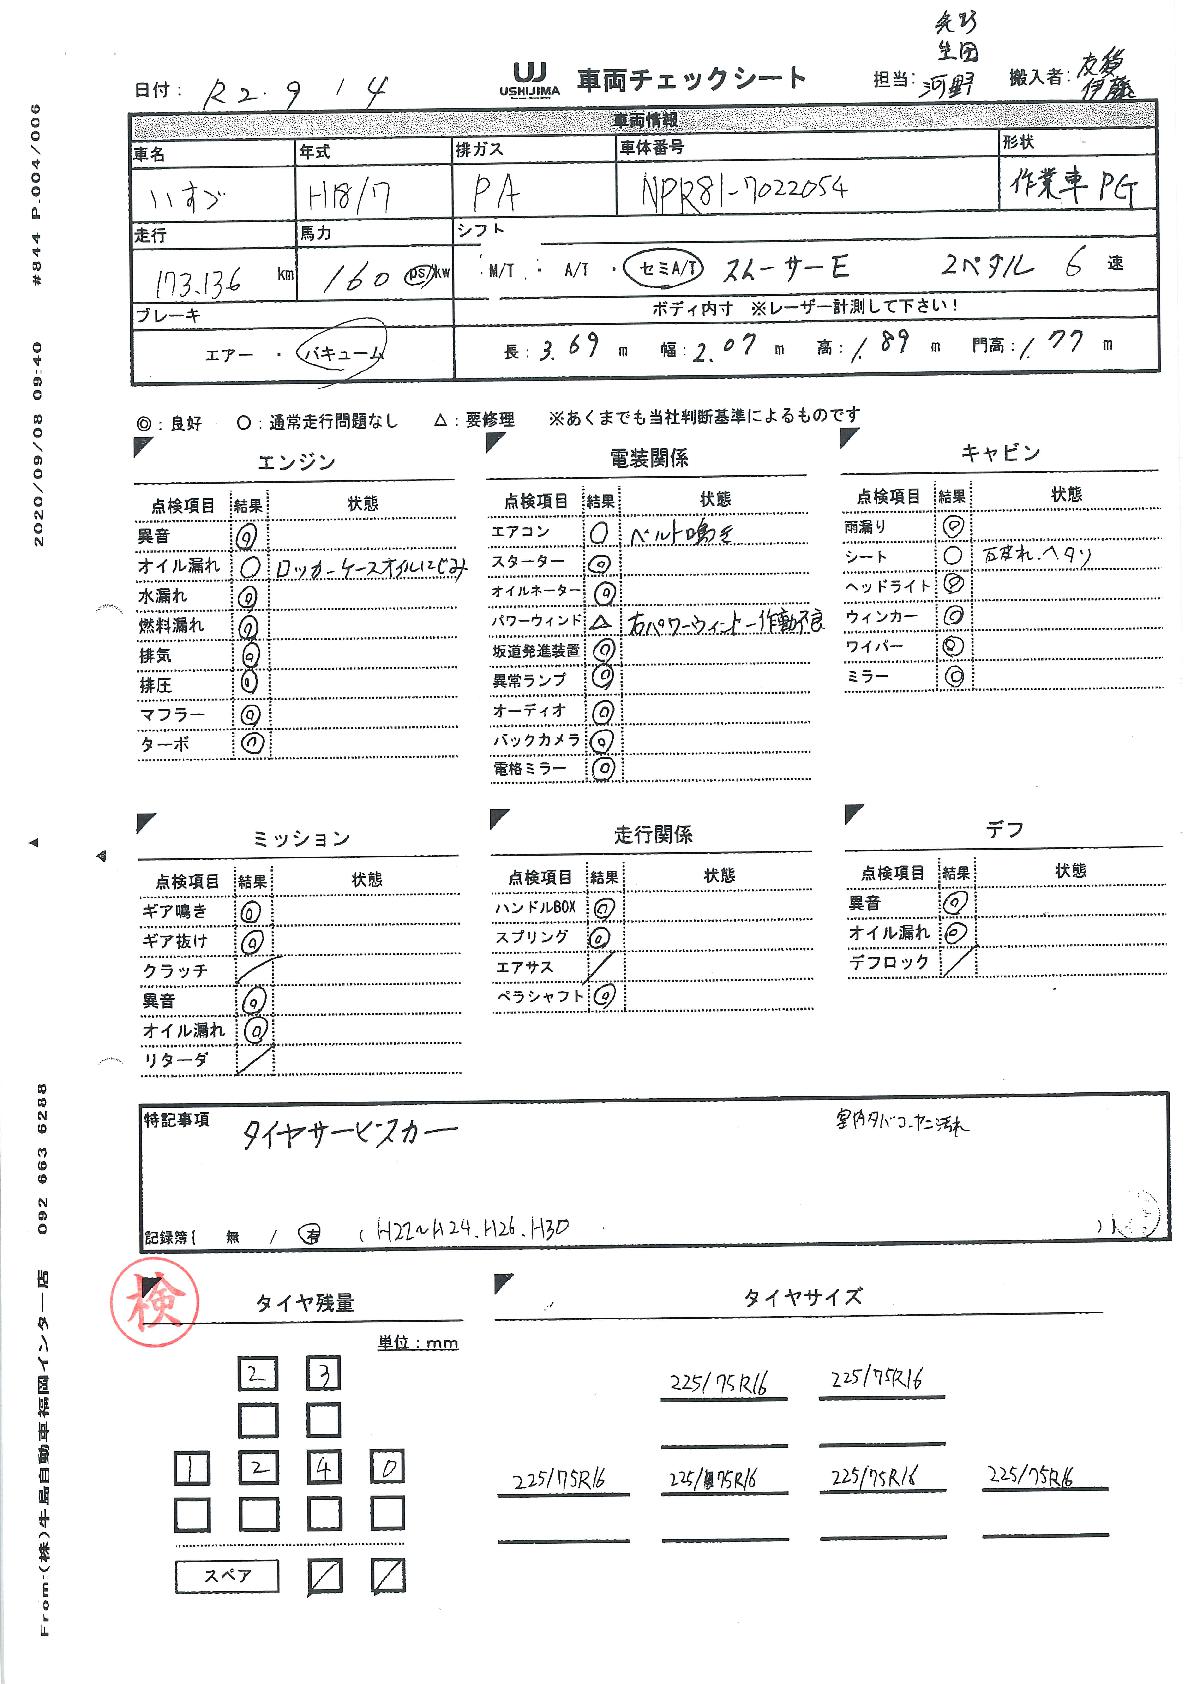 日付： R2.9 14
UJ
USHIJIMA
車両チェックシート
担当： 河野
生田
搬入者：
伊藤
車両情報
車名 年式 排ガス 車体番号 形状
いすゞ H18/7 PA NPR81-7022054 作業車 PG
走行 馬力 シフト
173.136 km 160 ps/kw M/T ・ A/T ・ セミA/T スムーサーE 2ペダル 6 速
ブレーキ ボディ内寸 ※レーザー計測して下さい！
エアー ・ バキューム 長：3.69 m 幅：2.07 m 高：1.89 m 門高：1.77 m
◎：良好 ○：通常走行問題なし △：要修理 ※あくまでも当社判断基準によるものです
エンジン
点検項目 結果 状態
異音 ◎
オイル漏れ ○ ロッカーケースオイルにじみ
水漏れ ◎
燃料漏れ ◎
排気 ◎
排圧 ◎
マフラー ◎
ターボ ◎
電装関係
点検項目 結果 状態
エアコン ○ ベルト鳴き
スターター ◎
オイルネーター ◎
パワーウィンド △ 右パワーウィンドー作動不良
坂道発進装置 ◎
異常ランプ ◎
オーディオ ◎
バックカメラ ◎
電格ミラー ◎
キャビン
点検項目 結果 状態
雨漏り ◎
シート ○ 破れ.ヘタリ
ヘッドライト ◎
ウィンカー ◎
ワイパー ◎
ミラー ◎
ミッション
点検項目 結果 状態
ギア鳴き ◎
ギア抜け ◎
クラッチ ／
異音 ◎
オイル漏れ ◎
リターダ ／
走行関係
点検項目 結果 状態
ハンドルBOX ◎
スプリング ◎
エアサス ／
ペラシャフト ◎
デフ
点検項目 結果 状態
異音 ◎
オイル漏れ ◎
デフロック ／
特記事項 タイヤサービスカー 室内タバコヤニ汚れ
記録簿( 無 / 有 ( H22～H24.H26.H30 ) )
検
タイヤ残量
単位：mm
2 3
1 2 4 0
スペア ／ ／
タイヤサイズ
225/75R16 225/75R16
225/75R16 225/75R16 225/75R16 225/75R16
From-(株)牛島自動車福岡インター店 092 663 6288 2020/09/08 09:40 #844 P.004/006